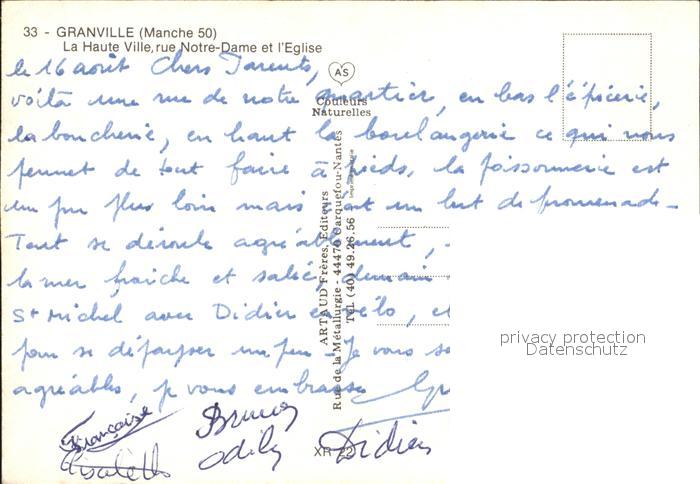 33 - GRANVILLE (Manche 50)
La Haute Ville, rue Notre-Dame et l'Eglise
AS
Couleurs
Naturelles
le 16 août Chers Parents,
voilà une rue de notre quartier, en bas l'épicerie,
la boucherie, en haut la boulangerie ce qui nous
permet de tout faire à pieds, la poissonnerie est
un peu plus loin mais c'est un but de promenade
Tout se déroule agréablement,
la mer fraîche et salée, demain
St Michel avec Didier en vélo, et
pour se dépayser un peu. Je vous
agréables, je vous embrasse
Françoise Bruno
Elisabeth Odile Didier
ARTAUD Frères, Editeurs
Rue de la Métallurgie - 44470 Carquefou-Nantes
Tél. (40) 49.26.56
XR
privacy protection
Datenschutz